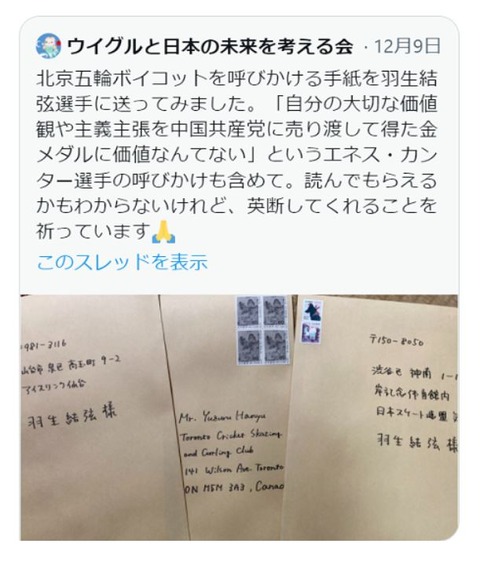 ウイグルと日本の未来を考える会 · 12月9日
北京五輪ボイコットを呼びかける手紙を羽生結
弦選手に送ってみました。「自分の大切な価値
観や主義主張を中国共産党に売り渡して得た金
メダルに価値なんてない」というエネス・カン
ター選手の呼びかけも含めて。読んでもらえる
かもわからないけれど、英断してくれることを
祈っています🙏
このスレッドを表示
981-3116
仙台市 泉区 高玉町 9-2
アイスリンク仙台
羽生結弦 様
Mr. Yuzuru Hanyu
Toronto Cricket Skating
and Curling Club
141 Wilson Ave. Toronto
ON M5M 3A3, Canad
〒150-8050
渋谷区 神南 1-1
岸記念体育館内
日本スケート連盟
羽生結弦 様